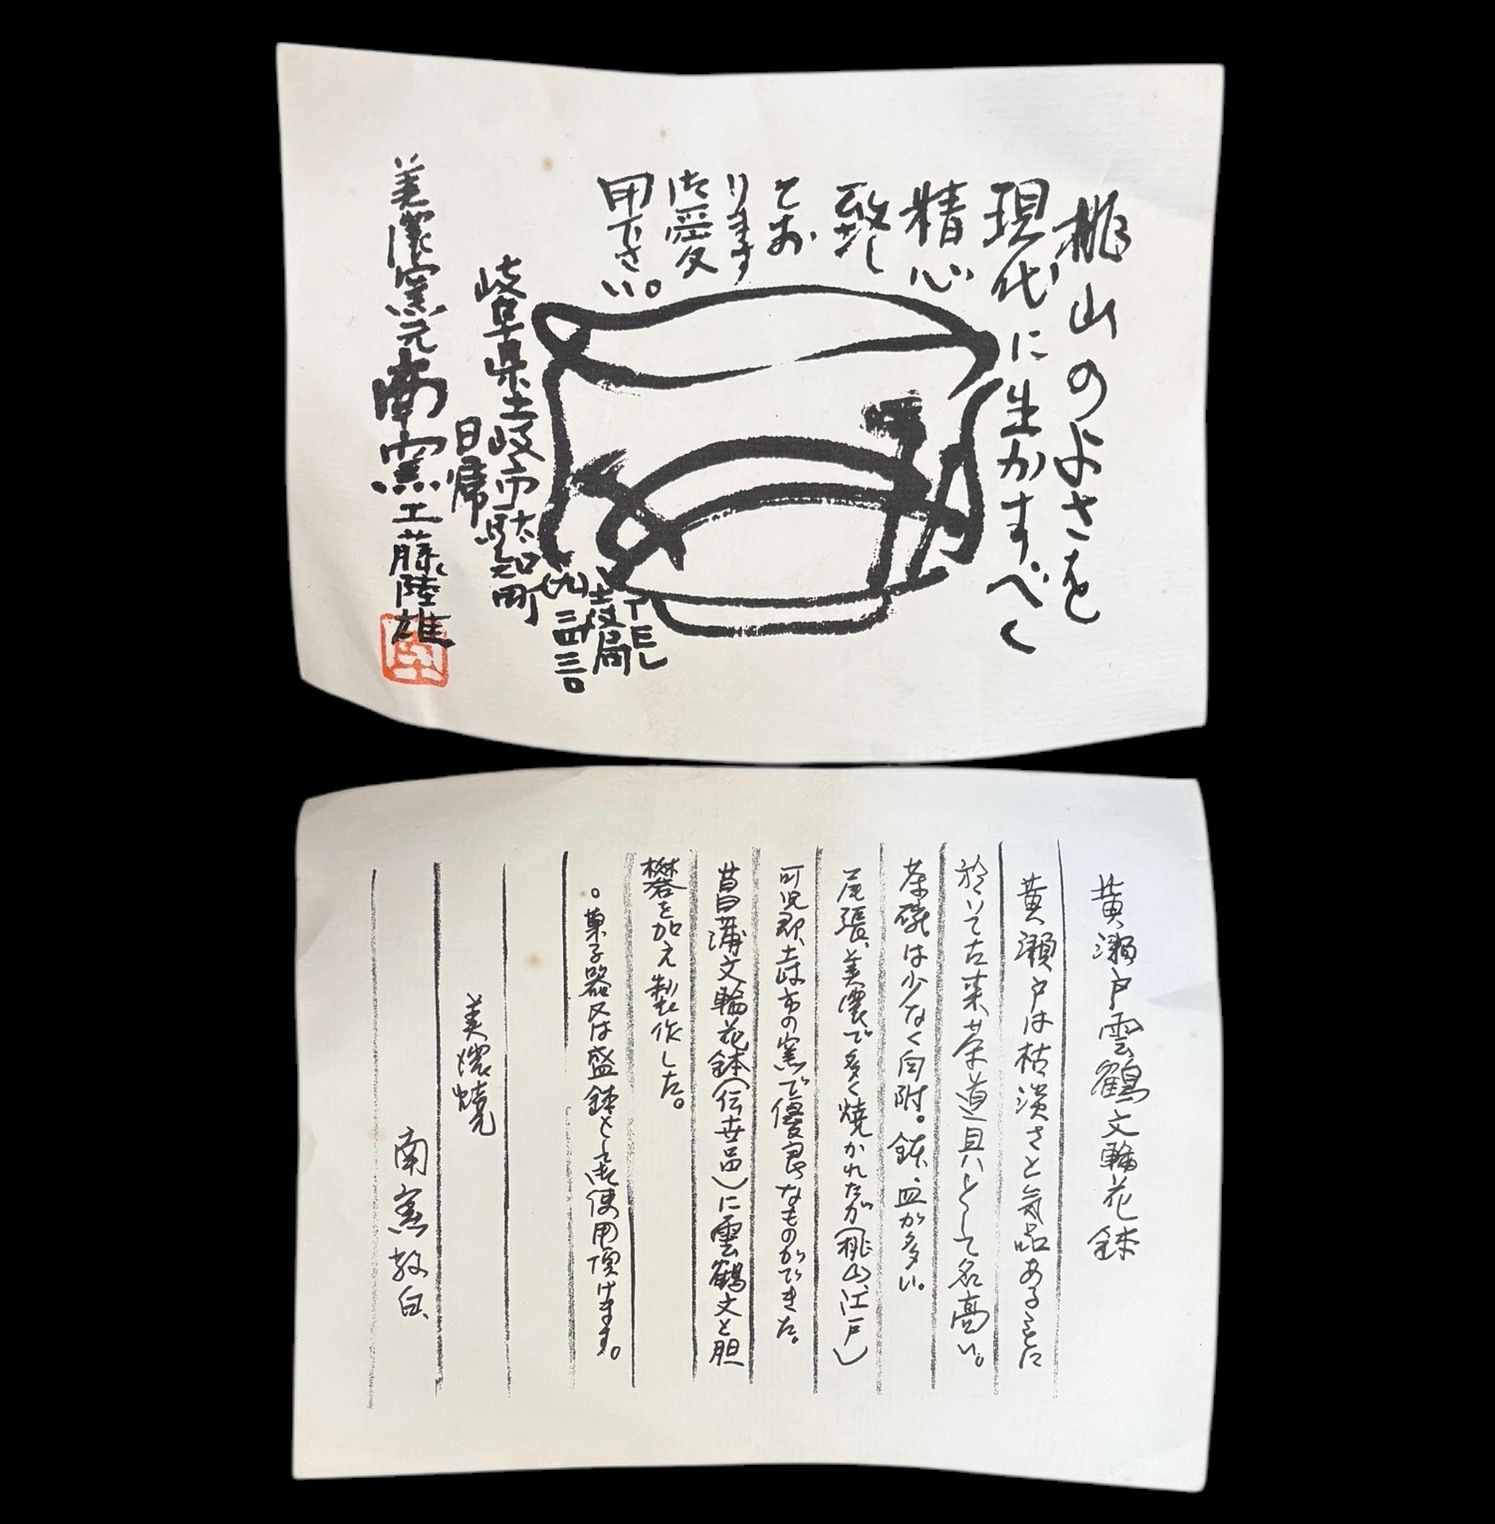 桃山のよさを
現代に生かすべく
精心
致し
てお
ります
御愛
用下さい。
岐阜県土岐市駄知町
日帰
TEL
土岐局
(九)三四三〇
美濃窯元南窯工藤陸雄
黄瀬戸雲鶴文輪花鉢
黄瀬戸は枯淡さと気品あることに
於いて古来茶道具として名高い。
茶碗は少なく向附。鉢、皿が多い。
尾張、美濃で多く焼かれたが(桃山、江戸)
可児郡、土岐市の窯で優良なものができた。
菖蒲文輪花鉢(伝世品)に雲鶴文と胆
礬を加え製作した。
。菓子器又は盛鉢として御使用頂けます。
美濃焼
南窯敬白